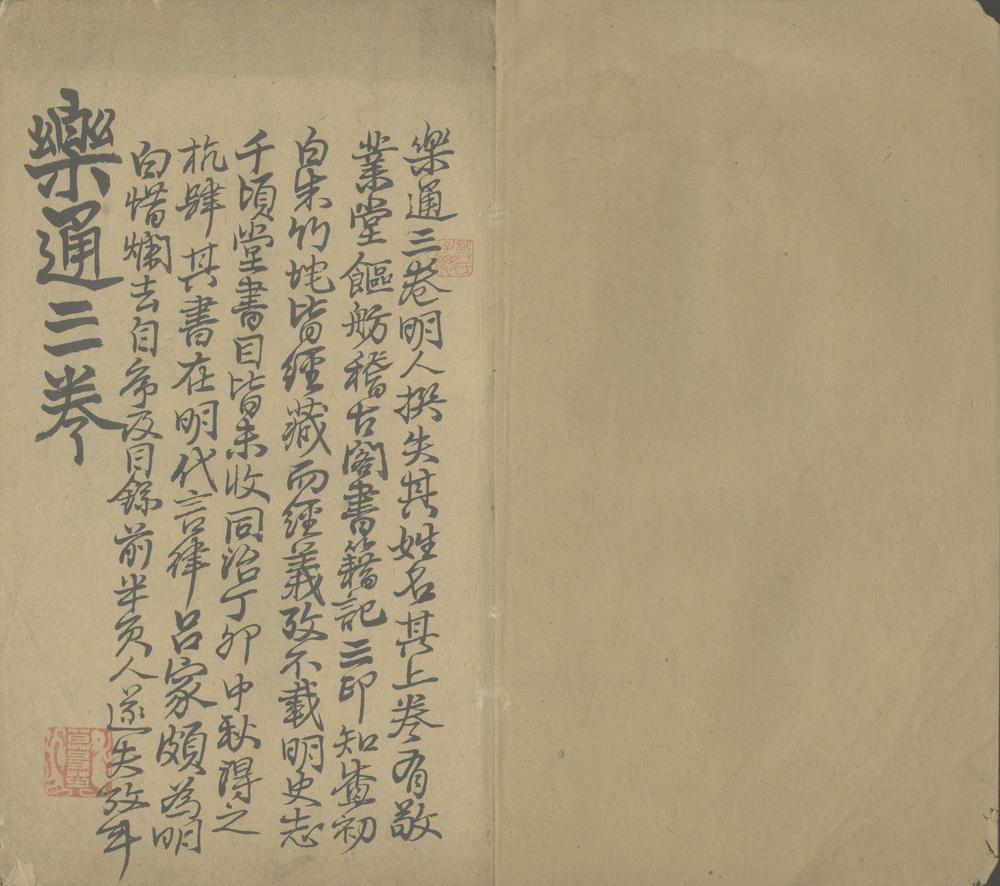 樂通三卷明人撰失其姓名其上卷有敬
業堂䑓舫稽古閣書籍記三印知查初
白朱竹垞皆經藏而經義攷不載明史志
千頃堂書目皆未收同治丁卯中秋得之
杭肆其書在明代言律呂家頗為明
白惜爛去自序及目錄前半頁人遂失攷耳
樂通三卷